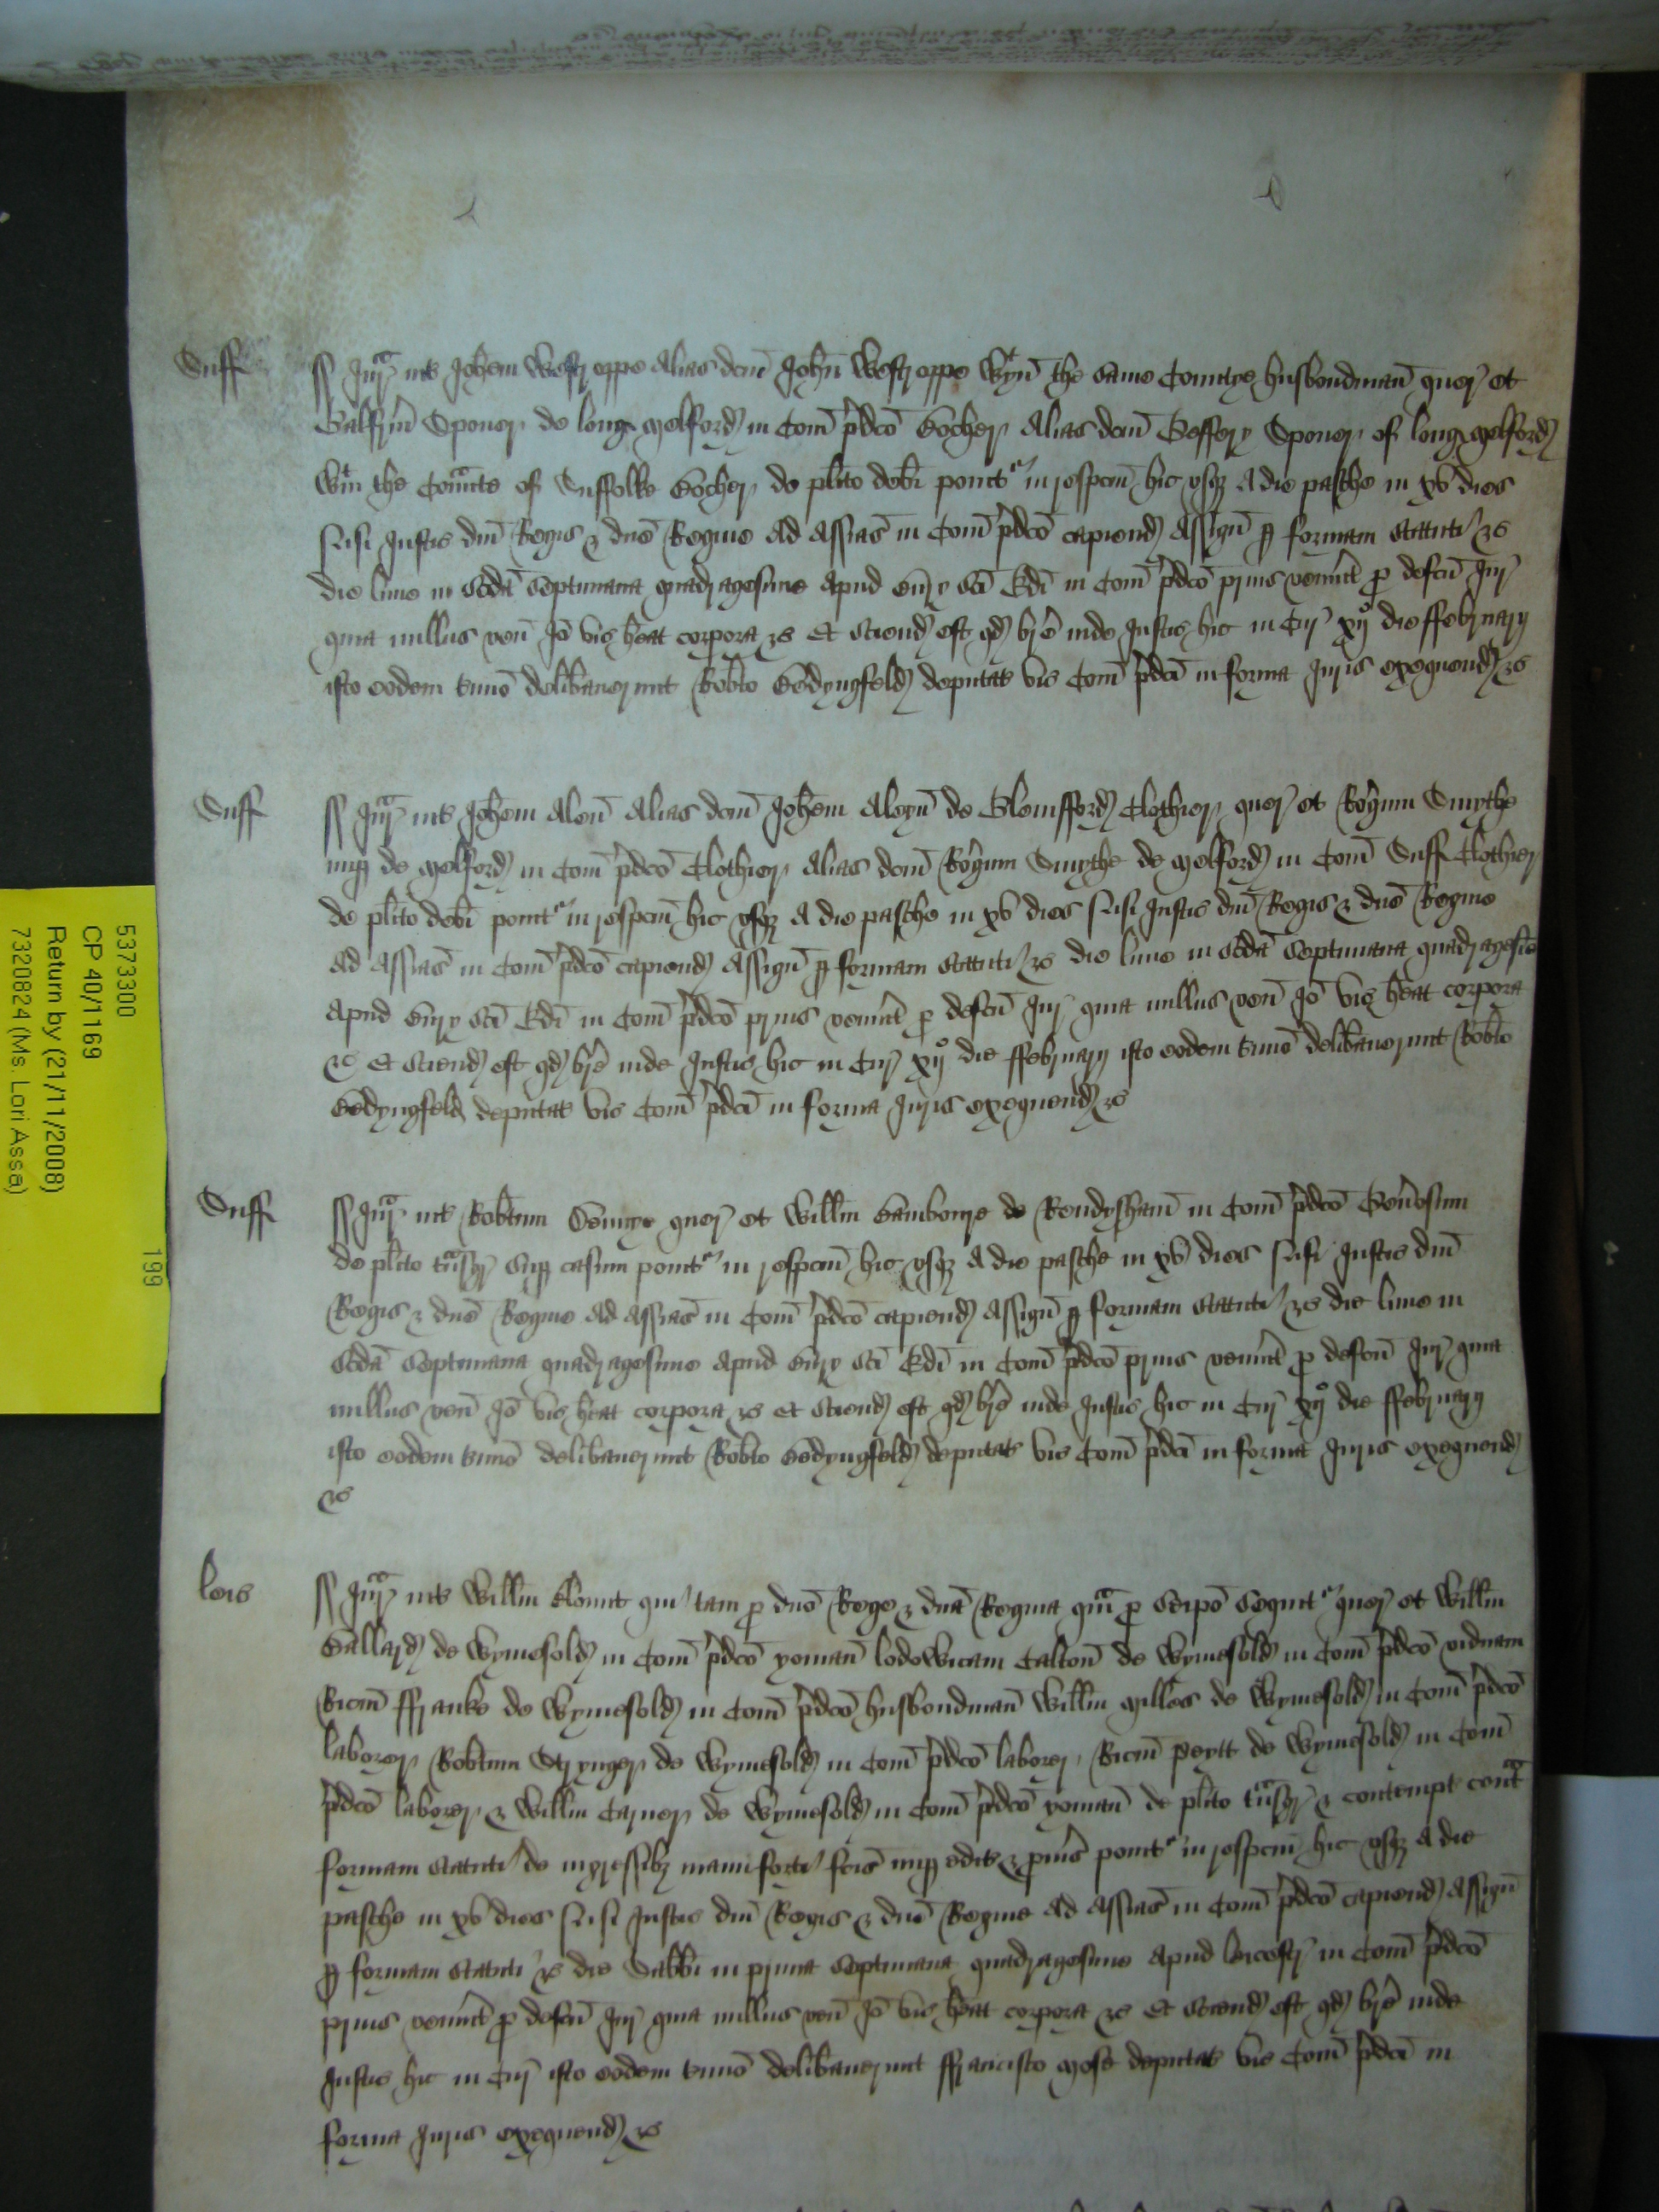 Suff
ss Jur̃ int̃ Joh̃em Westroppe alias dc̃m Joh̃n Westroppe wt yn the same Countye husbondman̄ quer̃ et
Galfrm̃ Sponer de long melford in Com̃ p̃dc̃o Bocher alias dc̃m Geffery Sponer of long melford
wt in the Countie of Suffolke Bocher de pl̃ito deb̃i ponit͛ in respc̃m hic usq̨ a die pasche in xv dies
Nisi Justic̃ dñi Regis & dñe Regine ad assĩas in Com̃ p̃dc̃o capiend assigñ p formam statuti &c
die lune in sc̃da Septimana quadragesime apud Bury Sc̃i Edĩ in Com̃ p̃dc̃o prius veñint p defc̃u Jur̃
quia nullus veñ Jo vic̃ h̃eat corpora &c Et sciend est qd br̃e inde Justic̃ hic in Cur̃ xijo die ffebruarij
isto eodem t̃mino delib̃averunt Rob̃to Bedyngfeld deputat̃ vic̃ Com̃ p̃dc̃i in forma Juris exequend &c
Suff
ss Jur̃ int̃ Joh̃em Aleñ alias dc̃m Joh̃em Aleyñ de Glemsfford Clothier quer̃ et Rog̃um Smythe
nup de melford in Com̃ p̃dc̃o Clothier alias dc̃m Rog̃um Smythe de melford in Com̃ Suff Clothier
de pl̃ito deb̃i ponit͛ in respc̃m hic usq̨ a die pasche in xv dies Nisi Justic̃ dñi Regis & dñe Regine
ad assĩas in Com̃ p̃dc̃o capiend assigñ p formam statuti &c die lune in sc̃da Septimana quadragesĩe
apud Bury Sc̃i Edĩ in Com̃ p̃dc̃o prius veñint p defc̃u Jur̃ quia nullus veñ Jo vic̃ h̃eat corpora
&c Et sciend est qd br̃e inde Justic̃ hic in Cur̃ xijo die ffebruarij isto eodem t̃mino delib̃averunt Rob̃to
Bedyngfeld deputat̃ vic̃ Com̃ p̃dc̃i in forma Juris exequend &c
Suff
ss Jur̃ int̃ Rob̃tum quer̃ et Willm̃ de Rendyshm̃ in Com̃ p̃dc̃o Geñosum
de pl̃ito tr̃nsgr̃ sup casum ponit͛ in respc̃m hic usq̨ a die pasche in xv dies Nisi Justic̃ dñi
Regis & dñe Regine ad assĩas in Com̃ p̃dc̃o capiend assigñ p formam statuti &c die lune in
sc̃da Septimana quadragesime apud Bury Sc̃i Edĩ in Com̃ p̃dc̃o prius veñint p defc̃u Jur̃ quia
nullus veñ Jo vic̃ h̃eat corpora &c Et sciend est qd br̃e inde Justic̃ hic in Cur̃ xijo die ffebruarij
isto eodem t̃mino delib̃averunt Rob̃to Bedyngfeld deputat̃ vic̃ Com̃ p̃dc̃i in forma Juris exequend
&c
leic̃
ss Jur̃ int̃ Willm̃ Blount qui tam p dño Rege & dña Regina qm̃ p seipõ sequit͛ quer̃ et Willm̃
Ballard de Wymesold in Com̃ p̃dc̃o yoman̄ lodowicam Calton̄ de Wymesold in Com̃ p̃dc̃o viduam
Ricm̃ ffranke de Wymesold in Com̃ p̃dc̃o husbondman̄ Willm̃ Milles de Wymesold in Com̃ p̃dc̃o
laborer Rob̃tum Strynger de Wymesold in Com̃ p̃dc̃o laborer Ricm̃ Peytt de Wymesold in Com̃
p̃dc̃o laborer & Willm̃ Carver de Wymesold in Com̃ p̃dc̃o yoman̄ de pl̃ito tr̃nsgr̃ & contempt̃ cont̃
formam statuti de ingressib̨ manuforti fc̃is inp edit̃ & p̃vis̃ ponit͛ in respc̃m hic usq̨ a die
pasche in xv dies Nisi Justic̃ dñi Regis & dñe Regine ad assĩas in Com̃ p̃dc̃o capiend assigñ
p formam statuti &c die Sabb̃i in prima Septimana quadragesime apud leicestr̃ in Com̃ p̃dc̃o
prius veñint p defc̃u Jur̃ quia nullus veñ Jo vic̃ h̃eat corpora &c Et sciend est qd br̃e inde
Justic̃ hic in Cur̃ isto eodem t̃mino delib̃averunt ffrancisco deputat̃ vic̃ Com̃ p̃dc̃i in
forma Juris exequend &c
5373300
CP 40/1169
Return by (21/11/2008)
7320824 (Ms. Lori Assa)
199